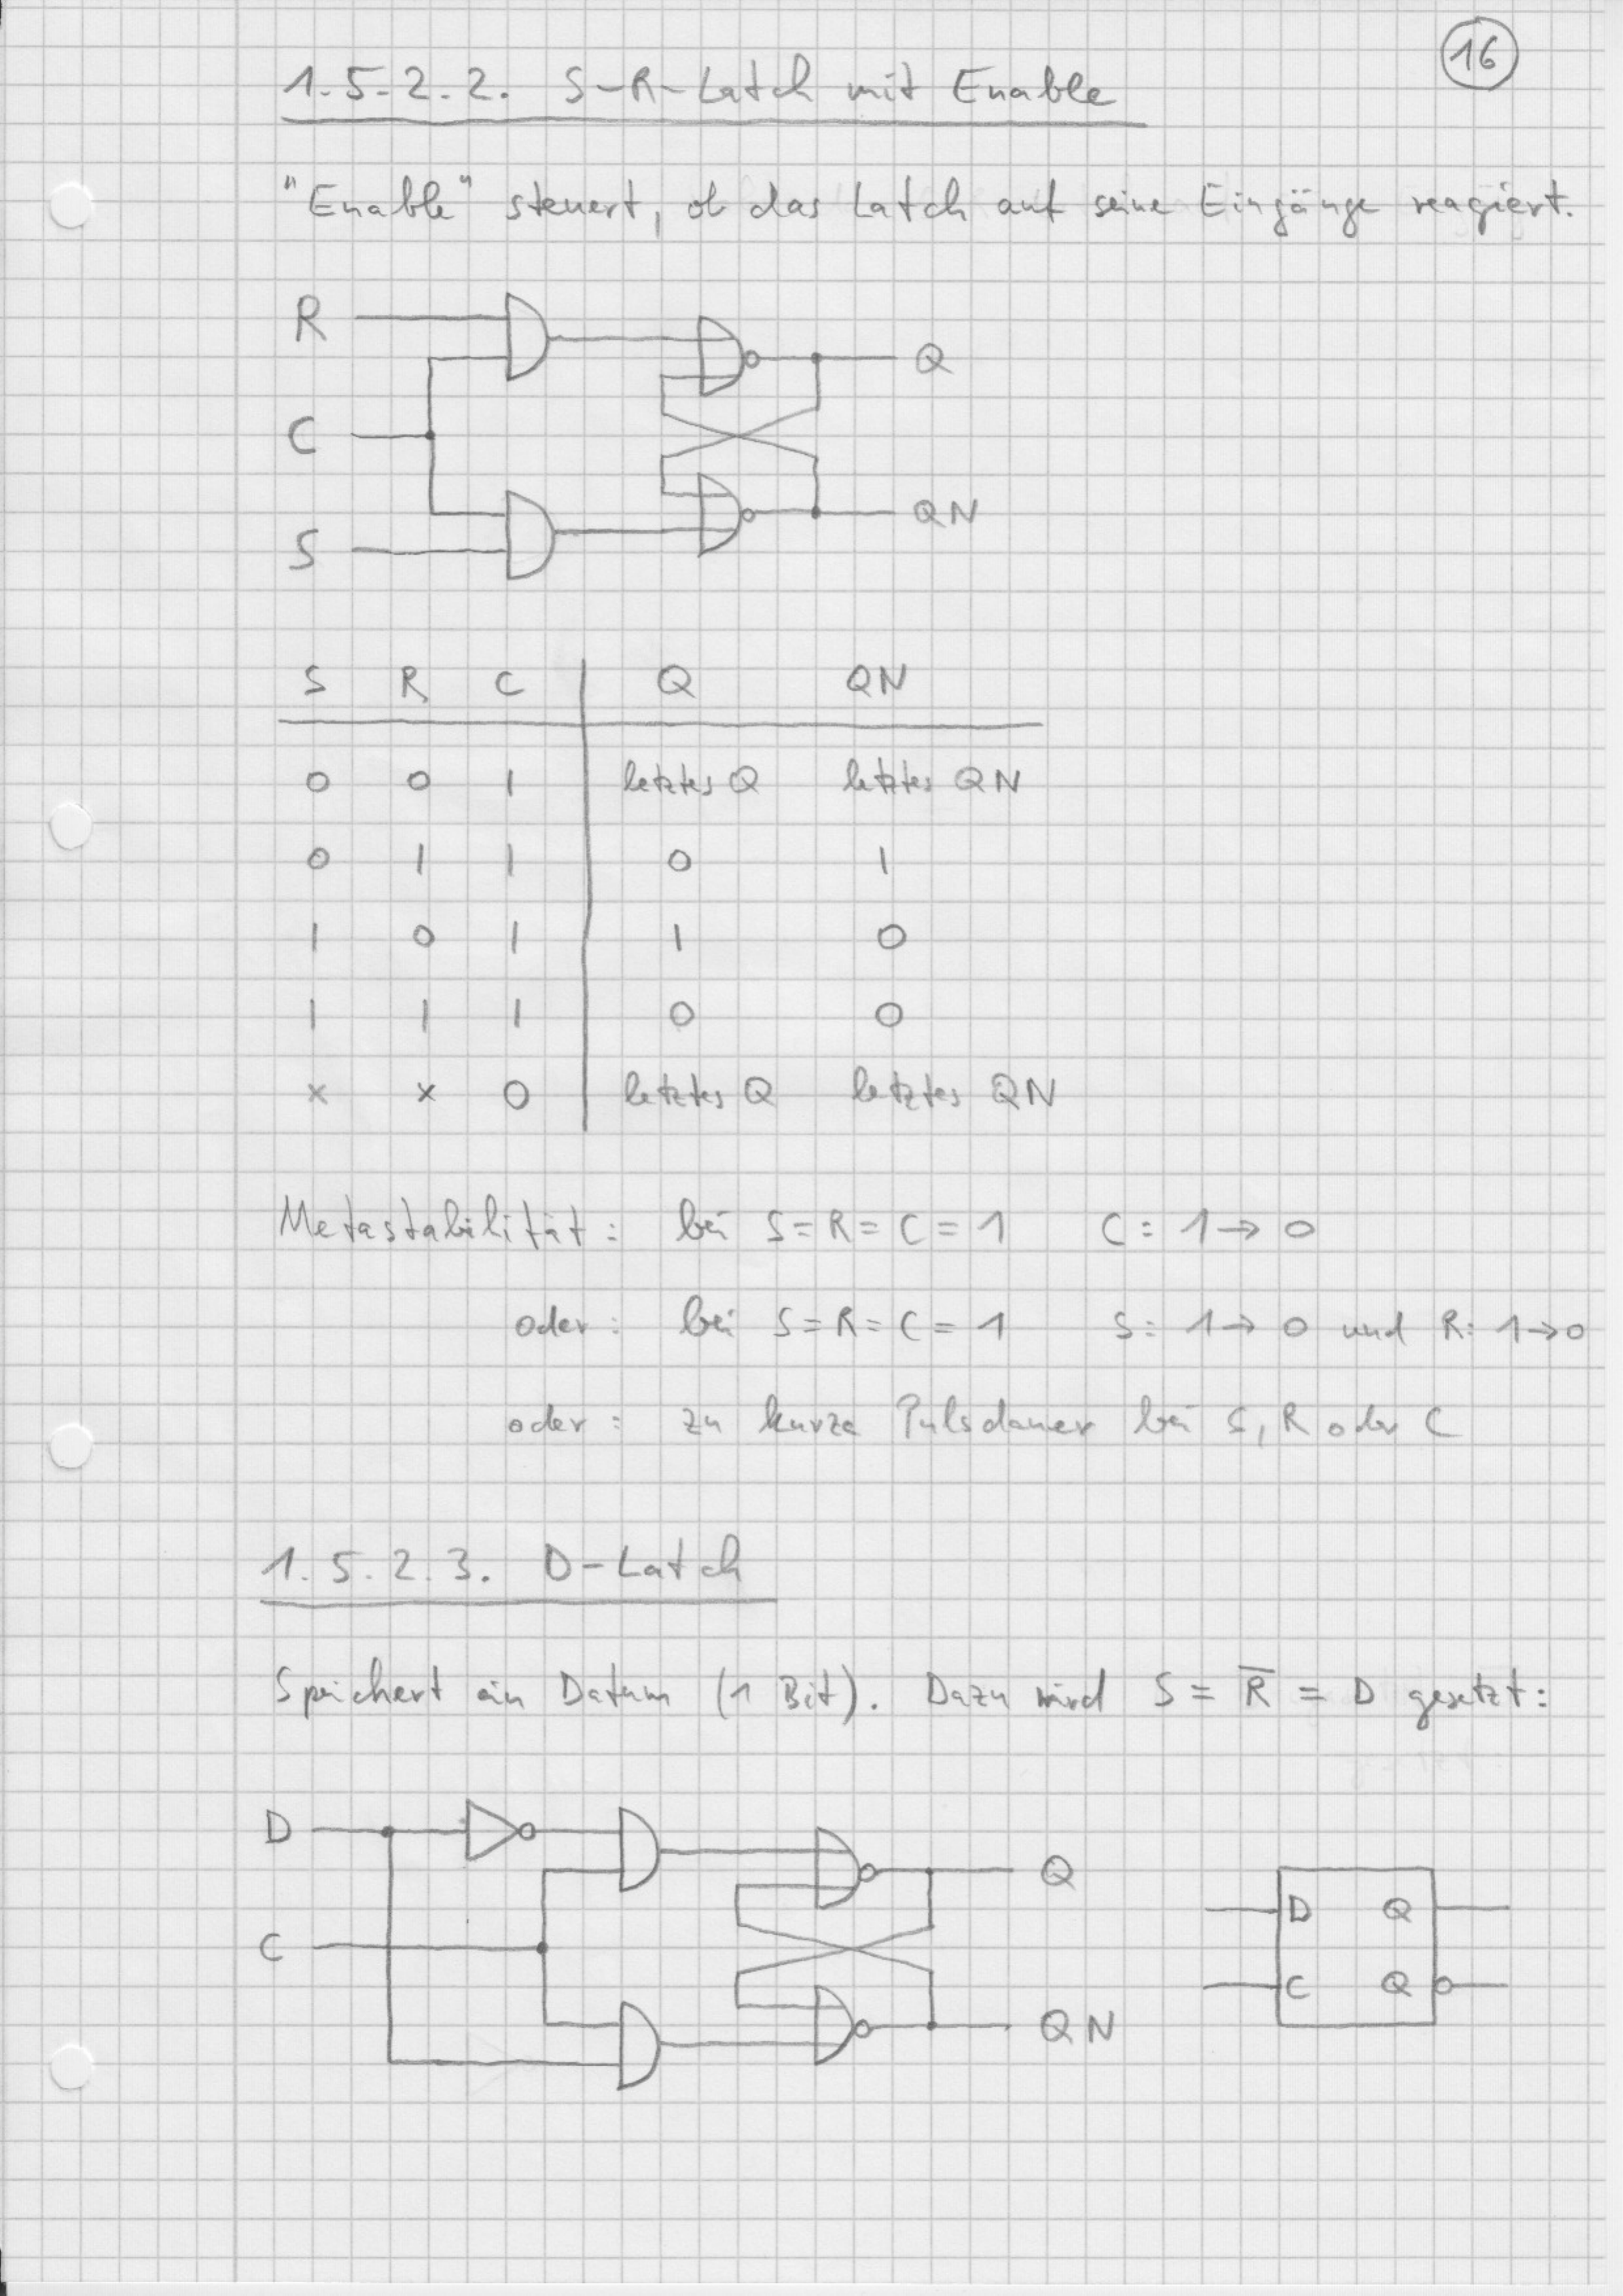 16
1.5.2.2. S-R-Latch mit Enable
"Enable" steuert, ob das Latch auf seine Eingänge reagiert.
R
Q
C
QN
S
S R C Q QN
0 0 1 letztes Q letztes QN
0 1 1 0 1
1 0 1 1 0
1 1 1 0 0
x x 0 letztes Q letztes QN
Metastabilität: bei S=R=C=1 C: 1→0
oder: bei S=R=C=1 S: 1→0 und R: 1→0
oder: zu kurze Pulsdauer bei S, R oder C
1.5.2.3. D-Latch
Speichert ein Datum (1 Bit). Dazu wird S = R̅ = D gesetzt:
D
Q
C
QN
D Q
C Q